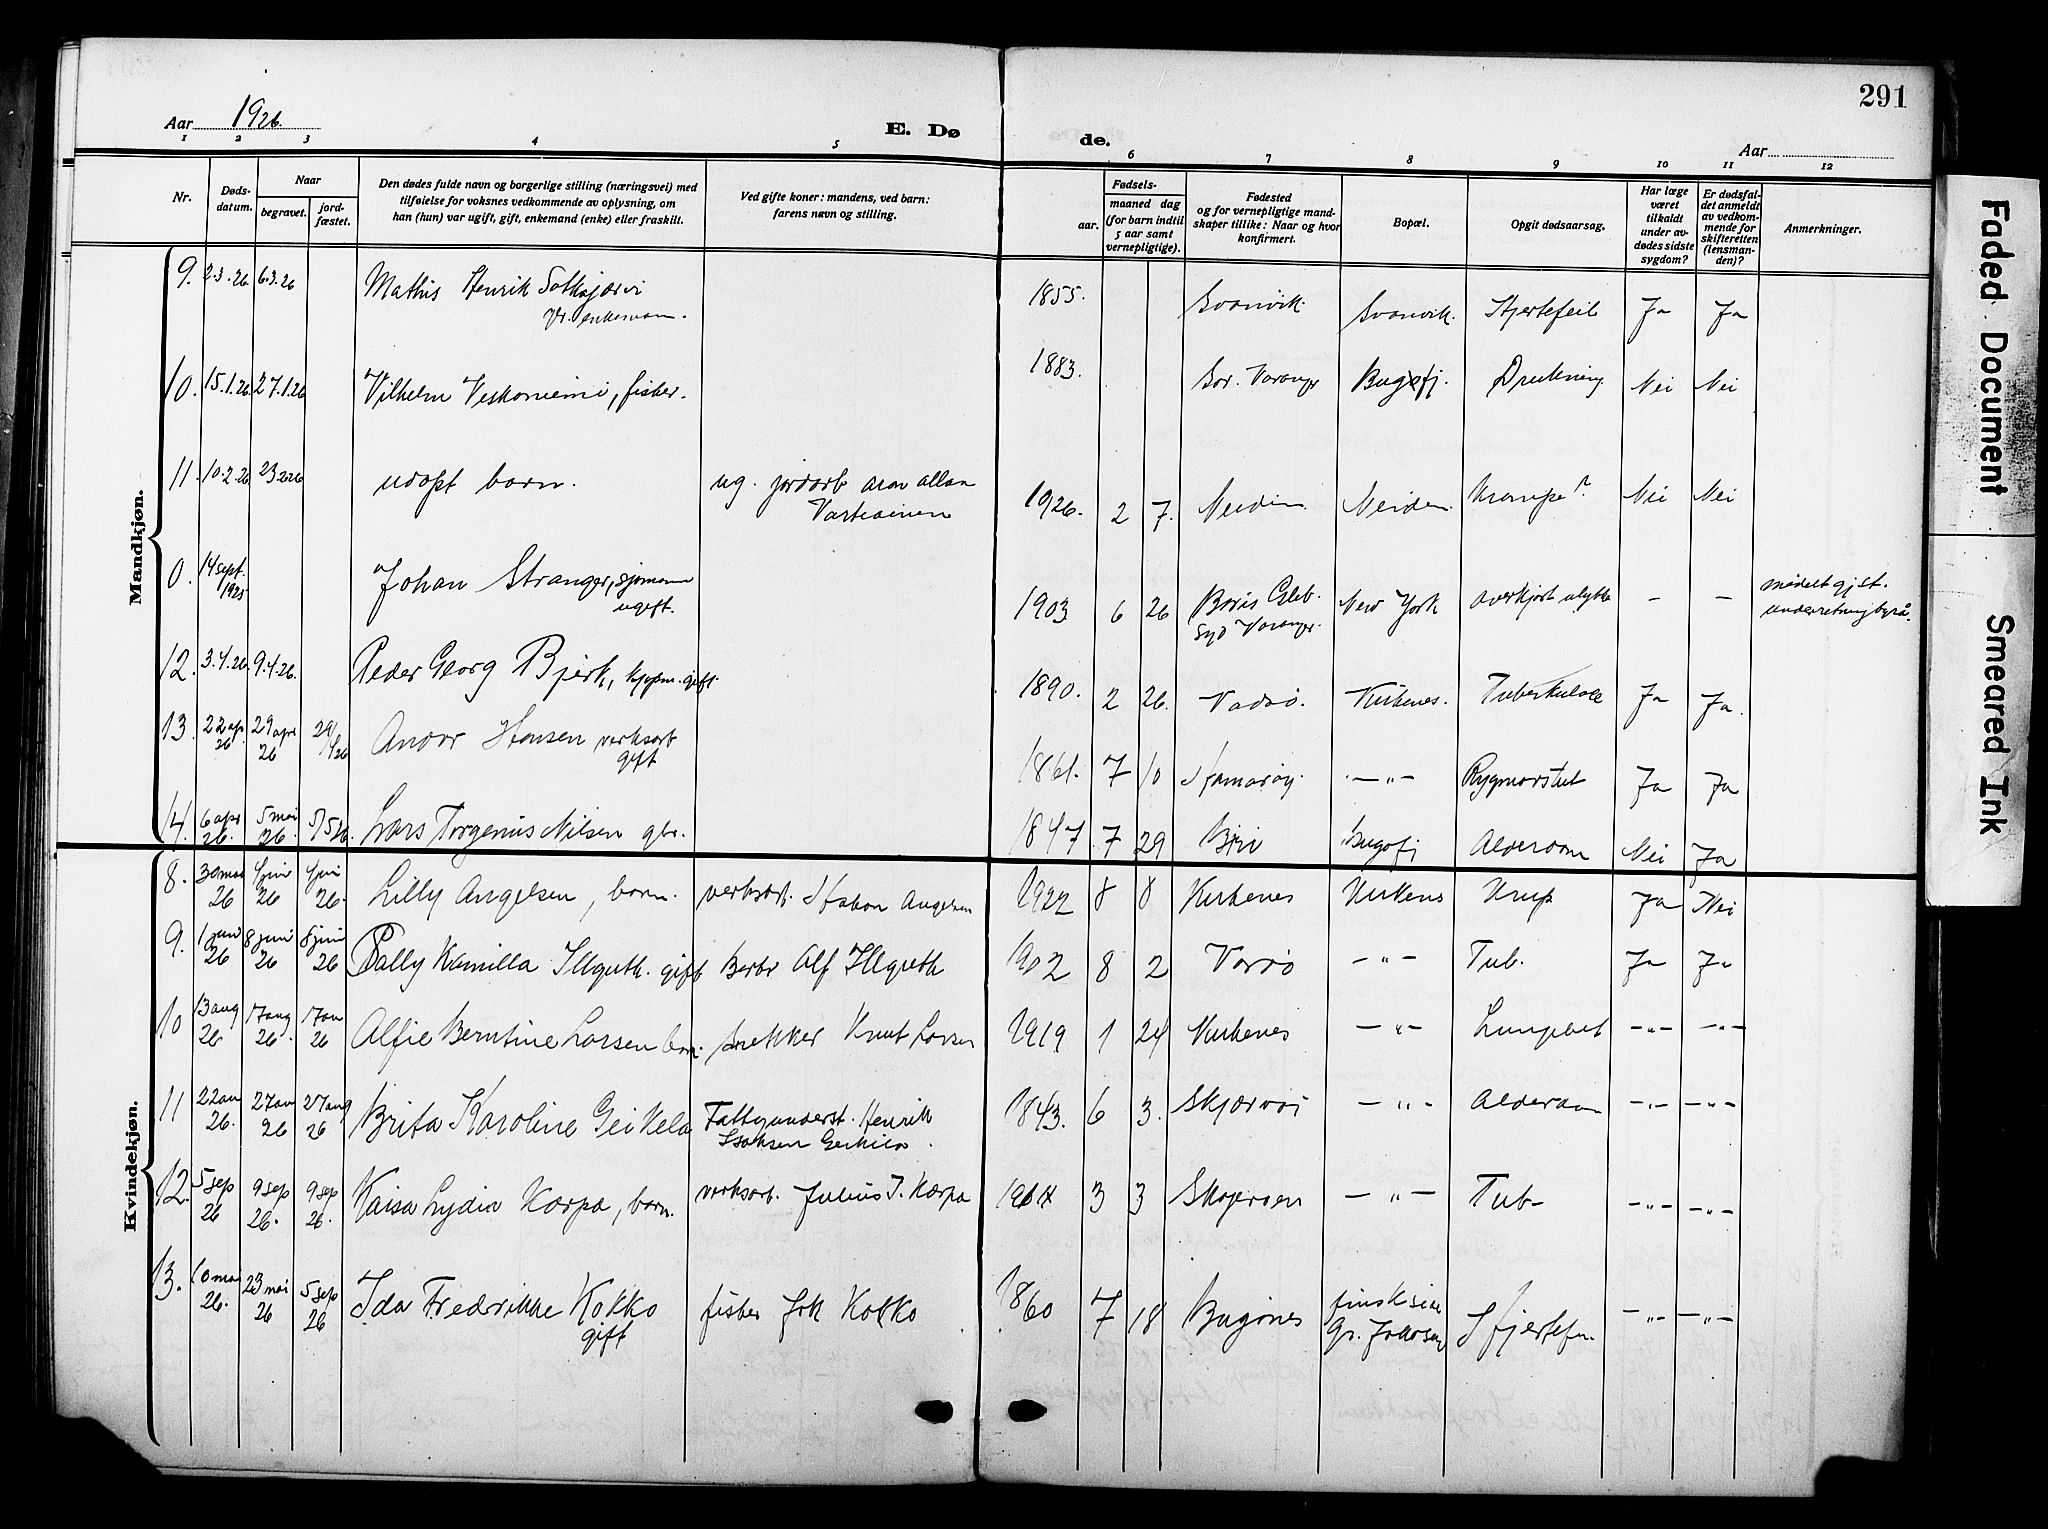 291
Aar 1926.
E. Dø de.
Aar
1 2 3 4 5 6 7 8 9 10 11 12
Nr.
Døds-
datum.
Naar
begravet.
jord-
fæstet.
Den dødes fulde navn og borgerlige stilling (næringsvei) med
tilføielse for voksnes vedkommende av oplysning, om
han (hun) var ugift, gift, enkemand (enke) eller fraskilt.
Ved gifte koner: mandens, ved barn:
farens navn og stilling.
Fødsels-
aar.
maaned dag
(for barn indtil
5 aar samt
vernepligtige).
Fødested
og for vernepligtige mand-
skaper tillike: Naar og hvor
konfirmert.
Bopæl.
Opgit dødsaarsag.
Har læge
været
tilkaldt
under av-
dødes sidste
sygdom?
Er dødsfal-
det anmeldt
av vedkom-
mende for
skifteretten
(lensman-
den)?
Anmerkninger.
Mandkjøn.
9. 2.3.26. 6.3.26 Mathis Henrik 1855. Svanvik Svanvik. Hjertefeil Ja Ja
enkemann.
10. 15.1.26. 27.1.26 Vilhelm Veskoniemi, fisker. 1883. Sør. Varanger Bugøfj. Drukning Nei Nei
11. 10.2.26 23.2.26 udøpt barn. ug. jordarb aron allan 1926. 2 7. Neiden. Neiden. Krampe? Nei Nei
Vartiainen
0. 14 sept. Johan Stranger, sjømann 1903. 6 26 Boris Gleb. New York overkjørt ulykke — —
1925 ugift. Syd Varanger.
12. 3.4.26. 9.4.26. Peder Georg Bjerk, gift. 1890. 2 26. Vadsø. Kirkenes. Tuberkulose Ja Ja.
13. 22 ap. 29 apr 29/4 26 Hansen verksarb 1861. 7 10 Hamarøy. —"— Rygmarstub Ja Ja
26 26 gift
14. 6 apr 5 mai 5/5 26. Lars Torgenius Nilsen gbr. 1847 7 29 Bugøfj Alderdom Nei Ja
26. 26.
Kvindekjøn.
8. 30 mai 4 juni 4 juni Lilly Angelsen, barn. verksarb. Haakon Angelsen 1922 8 8 Kirkenes Kirkenes Krup Ja Nei
26 26 26.
9. 1 juni 8 juni 8 juni Pally Kamilla Illguth. gift Alf Illguth 1902 8 2 Vardø —"— Tub. Ja Ja
26 26 26
10 13 aug 17 aug 17 au Alfie Berntine Larsen barn. snekker Knut Larsen 1919 1 24 Kirkenes —"— Lungebet —"— —"—
26 26. 26
11 22 au 27 au 27 aug Brita Karoline Geikela Fattigunderst. Henrik 1843. 6 3. Skjærvøi —"— Alderdom —"— —"—
26. 26 26 Isaksen
12. 5 sep 9 sep 9 sep Kaisa Lydia Karpa, barn. verksarb. Julius J. Karpa 3 3 Skogerøen —"— Tub- —"— —"—
26 26. 26.
13. 10 mai 23 mai 5 sep Ida Fredrikke Kokko fisker Kokko 1860 7 18 Bugønes finsk side —"— —"—
26. 26 26 gift Gr. Jakobselv
Faded Document
Smeared Ink